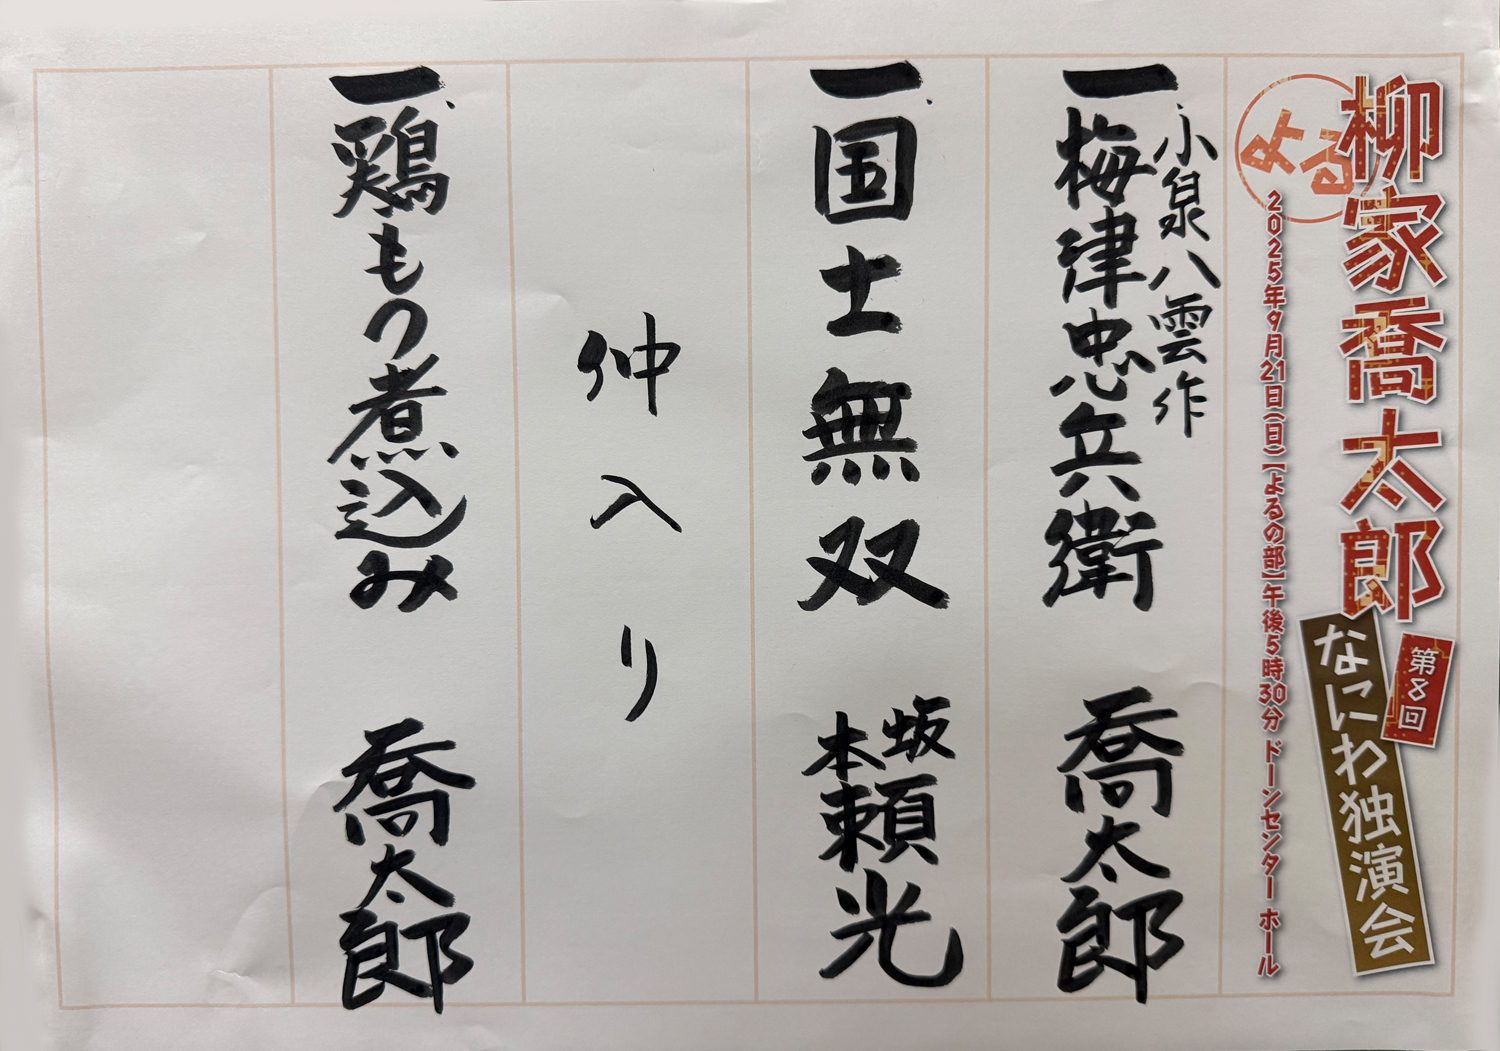 柳家喬太郎
第8回
なにわ独演会
よる
2025年9月21日(日)【よるの部】午後5時30分 ドーンセンター ホール
一、小泉八雲作
梅津忠兵衛 喬太郎
一、国士無双 坂本頼光
仲入り
一、鶏もつ煮込み 喬太郎